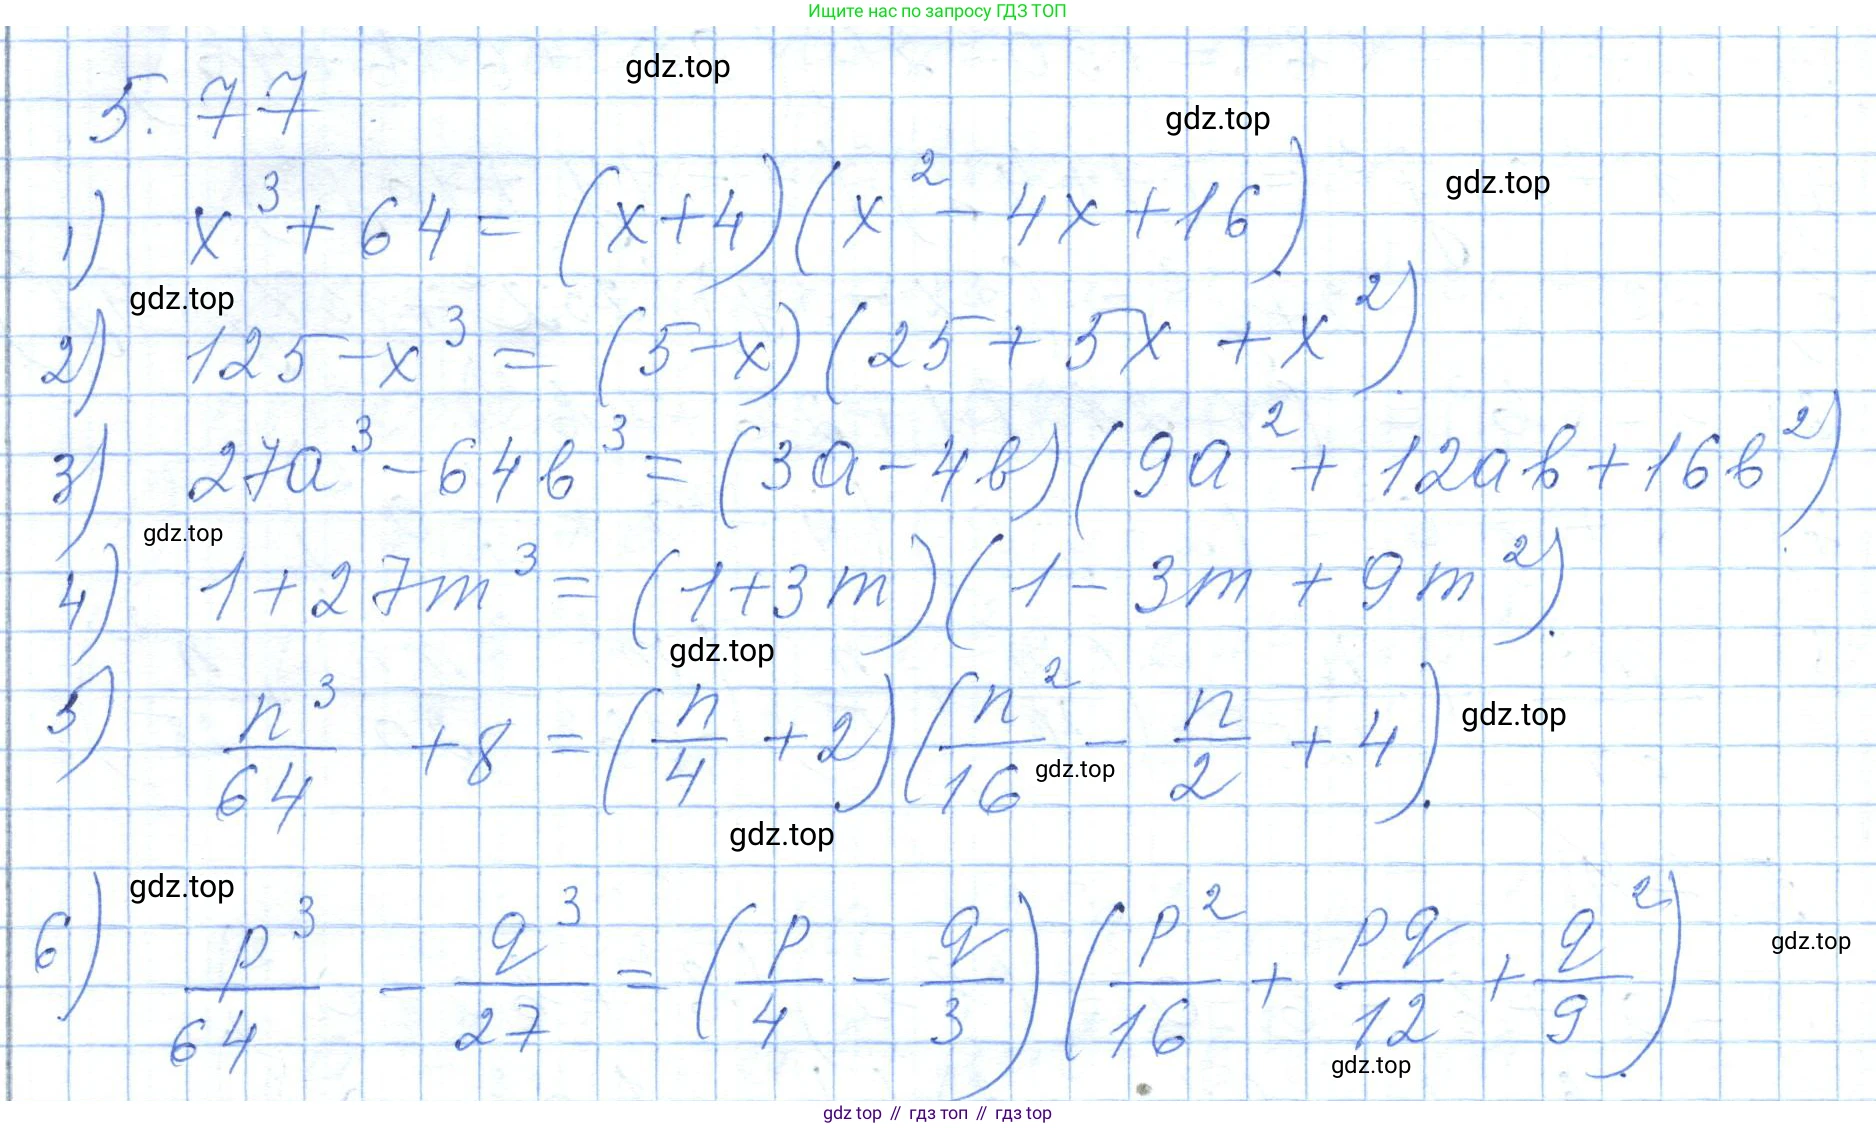 Ищите нас по запросу ГДЗ ТОП
gdz.top
5.77
gdz.top
gdz.top
1) x³ + 64 = (x+4)(x² - 4x + 16)
gdz.top
2) 125 - x³ = (5-x)(25 + 5x + x²).
3) 27a³ - 64b³ = (3a - 4b)(9a² + 12ab + 16b²).
gdz.top
4) 1 + 27m³ = (1+3m)(1 - 3m + 9m²).
gdz.top
5) n³/64 + 8 = (n/4 + 2)(n²/16 - n/2 + 4).
gdz.top
gdz.top
gdz.top
gdz.top
6) p³/64 - q³/27 = (p/4 - q/3)(p²/16 + pq/12 + q²/9).
gdz.top
gdz.top
gdz top // гдз топ // гдз top